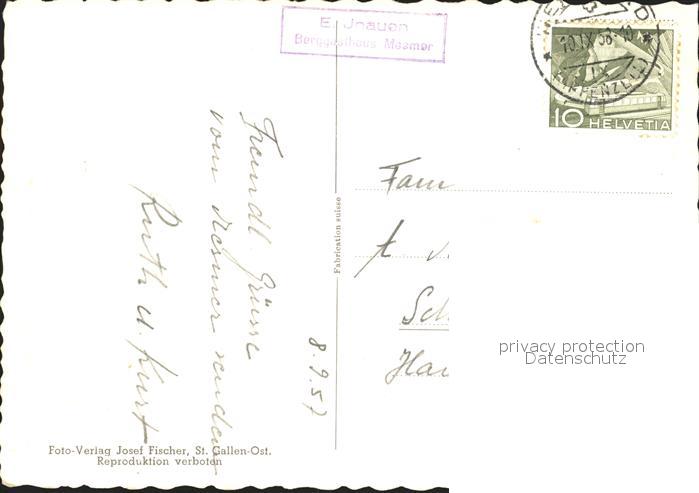 E. Jnauen
Berggasthaus Mesmer
10 HELVETIA
Freundl. Grüsse
vom Mesmer senden
Ruth u. Kurt
8.9.57
Fabrication suisse
Fam
Sch
privacy protection
Datenschutz
Foto-Verlag Josef Fischer, St. Gallen-Ost.
Reproduktion verboten